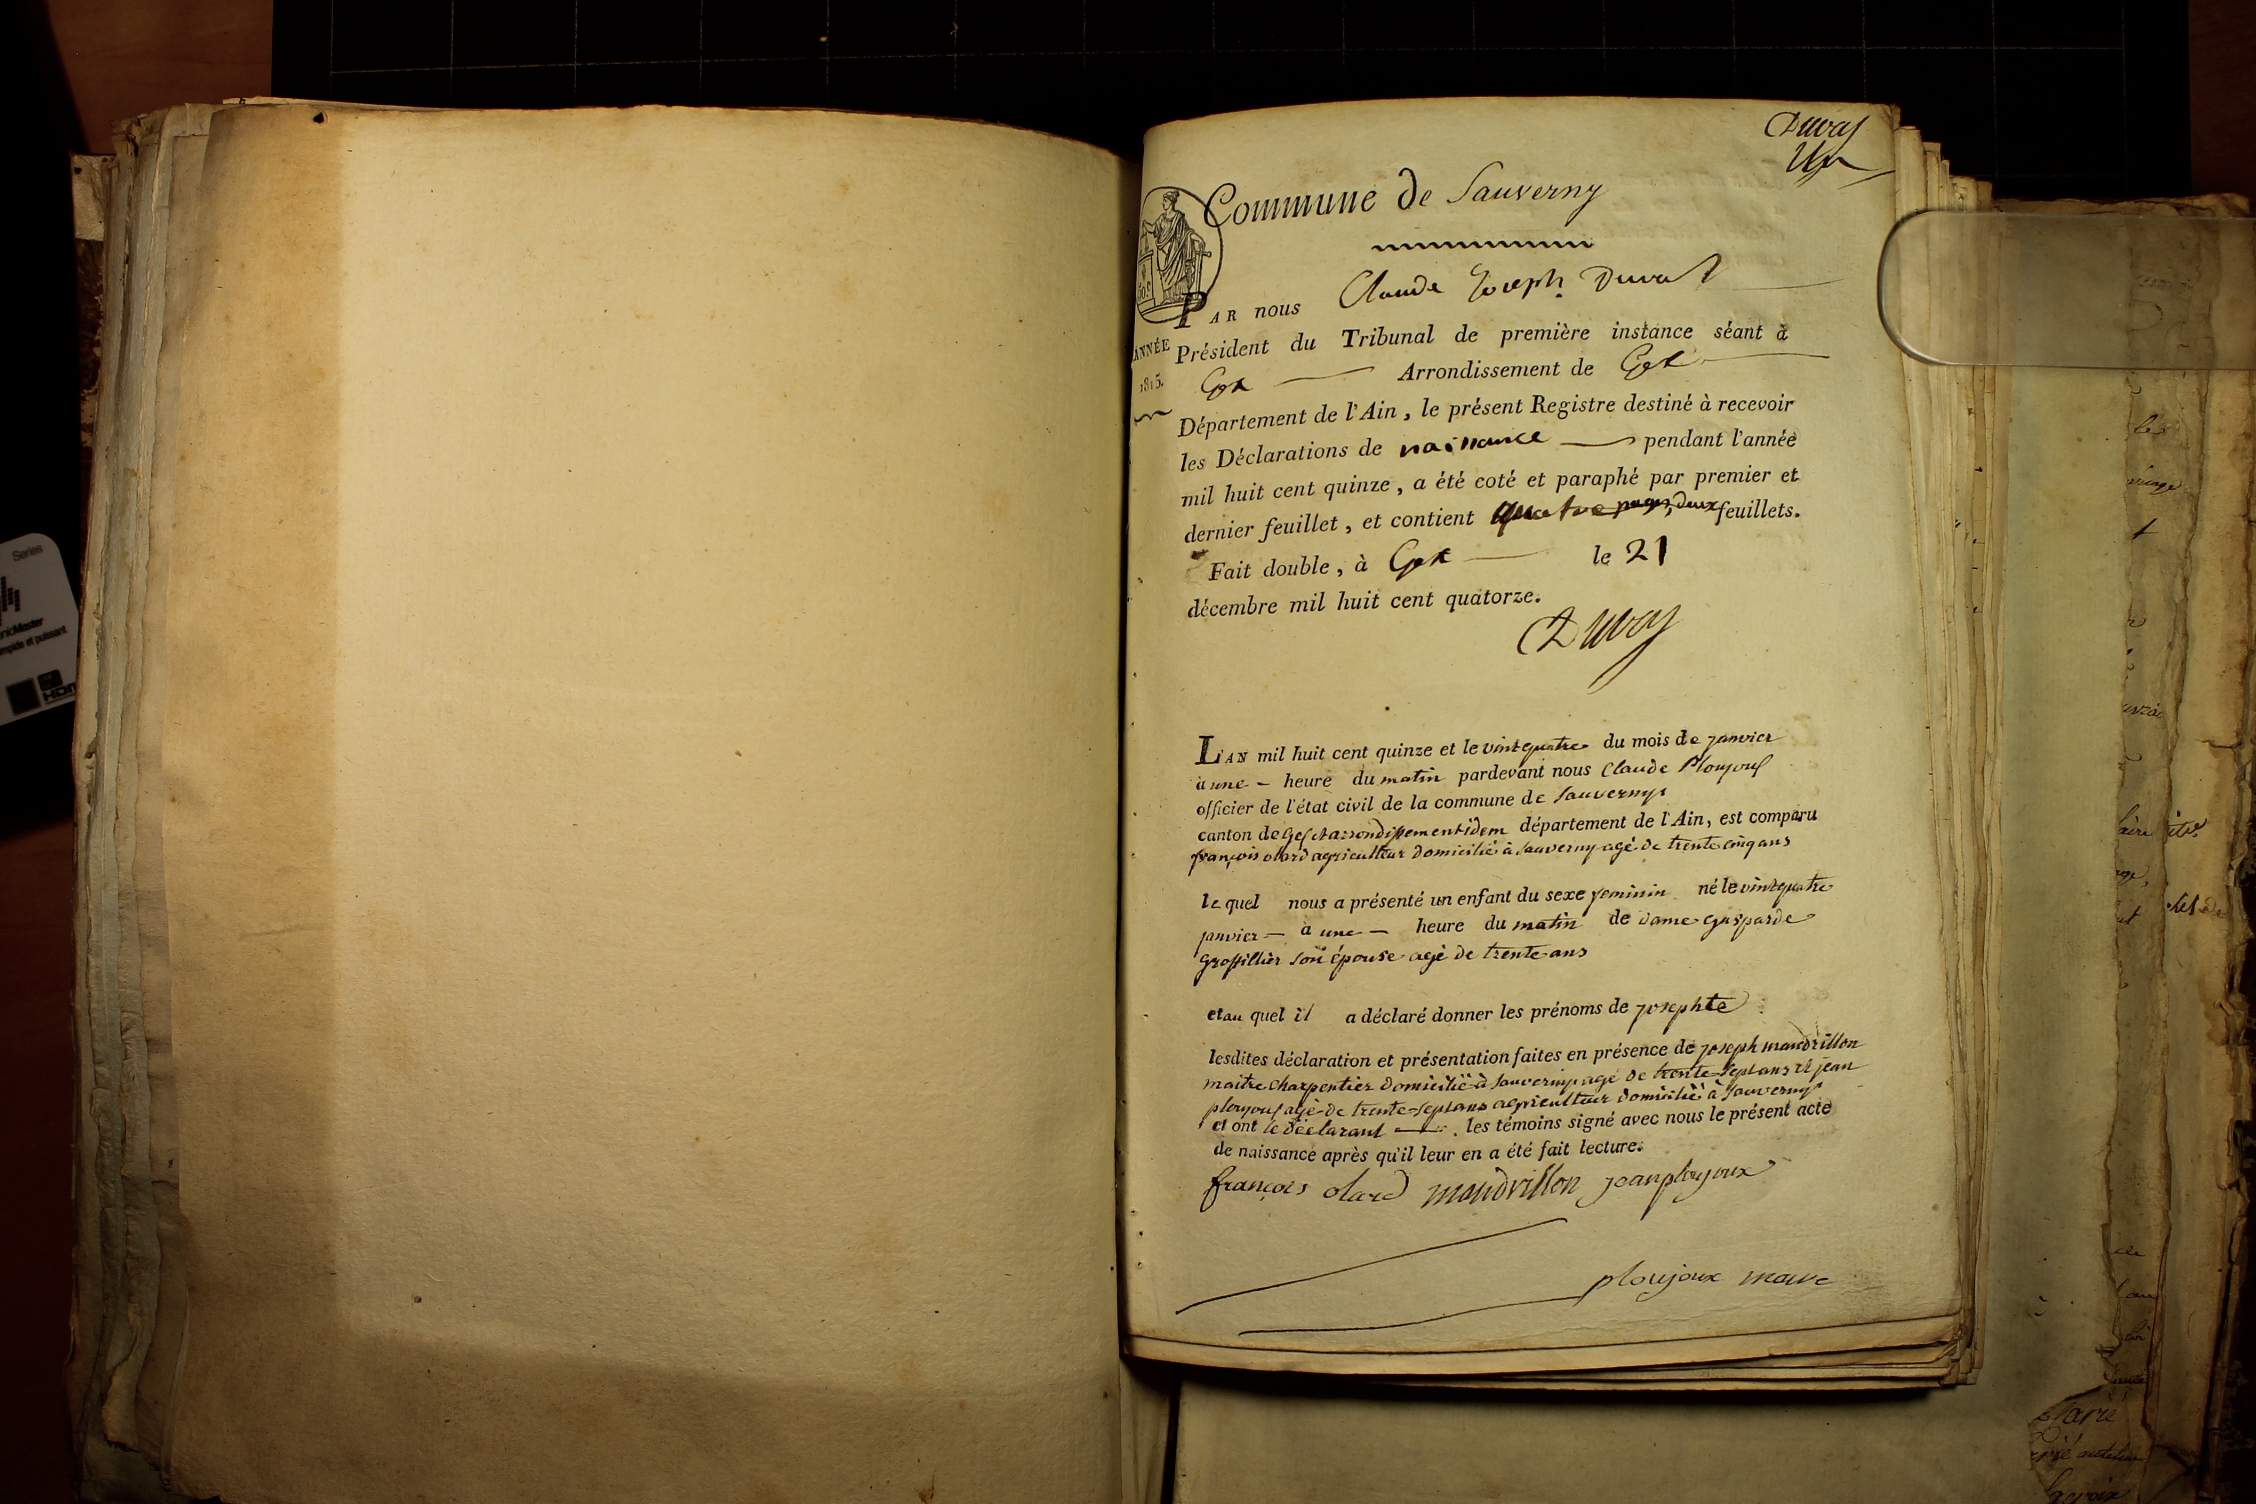 Duval
Un
Commune de Sauverny
PAR nous Claude Joseph Duval
ANNÉE
1815.
Président du Tribunal de première instance séant à
Gex Arrondissement de Gex
Département de l'Ain, le présent Registre destiné à recevoir
les Déclarations de naissance pendant l'année
mil huit cent quinze, a été coté et paraphé par premier et
dernier feuillet, et contient quatre pages, deux feuillets.
Fait double, à Gex le 21
décembre mil huit cent quatorze.
Duval
L'AN mil huit cent quinze et le vintquatre du mois de janvier
à une heure du matin pardevant nous Claude Ploujoux
officier de l'état civil de la commune de Sauverny
canton de Gex et arrondissement idem département de l'Ain, est comparu
françois olard agriculteur domicilié à Sauverny agé de trente cinq ans
le quel nous a présenté un enfant du sexe feminin né le vintquatre
janvier à une heure du matin de dame gasparde
grossillier son épouse agé de trente ans
et au quel il a déclaré donner les prénoms de josephte
lesdites déclaration et présentation faites en présence de joseph mandrillon
maitre charpentier domicilié à Sauverny agé de trente-sept ans et jean
ploujoux agé de trente-sept ans agriculteur domicilié à Sauverny
et ont le déclarant les témoins signé avec nous le présent acte
de naissance après qu'il leur en a été fait lecture.
françois olard mandrillon jean ploujoux
ploujoux maire
Series
HDMI